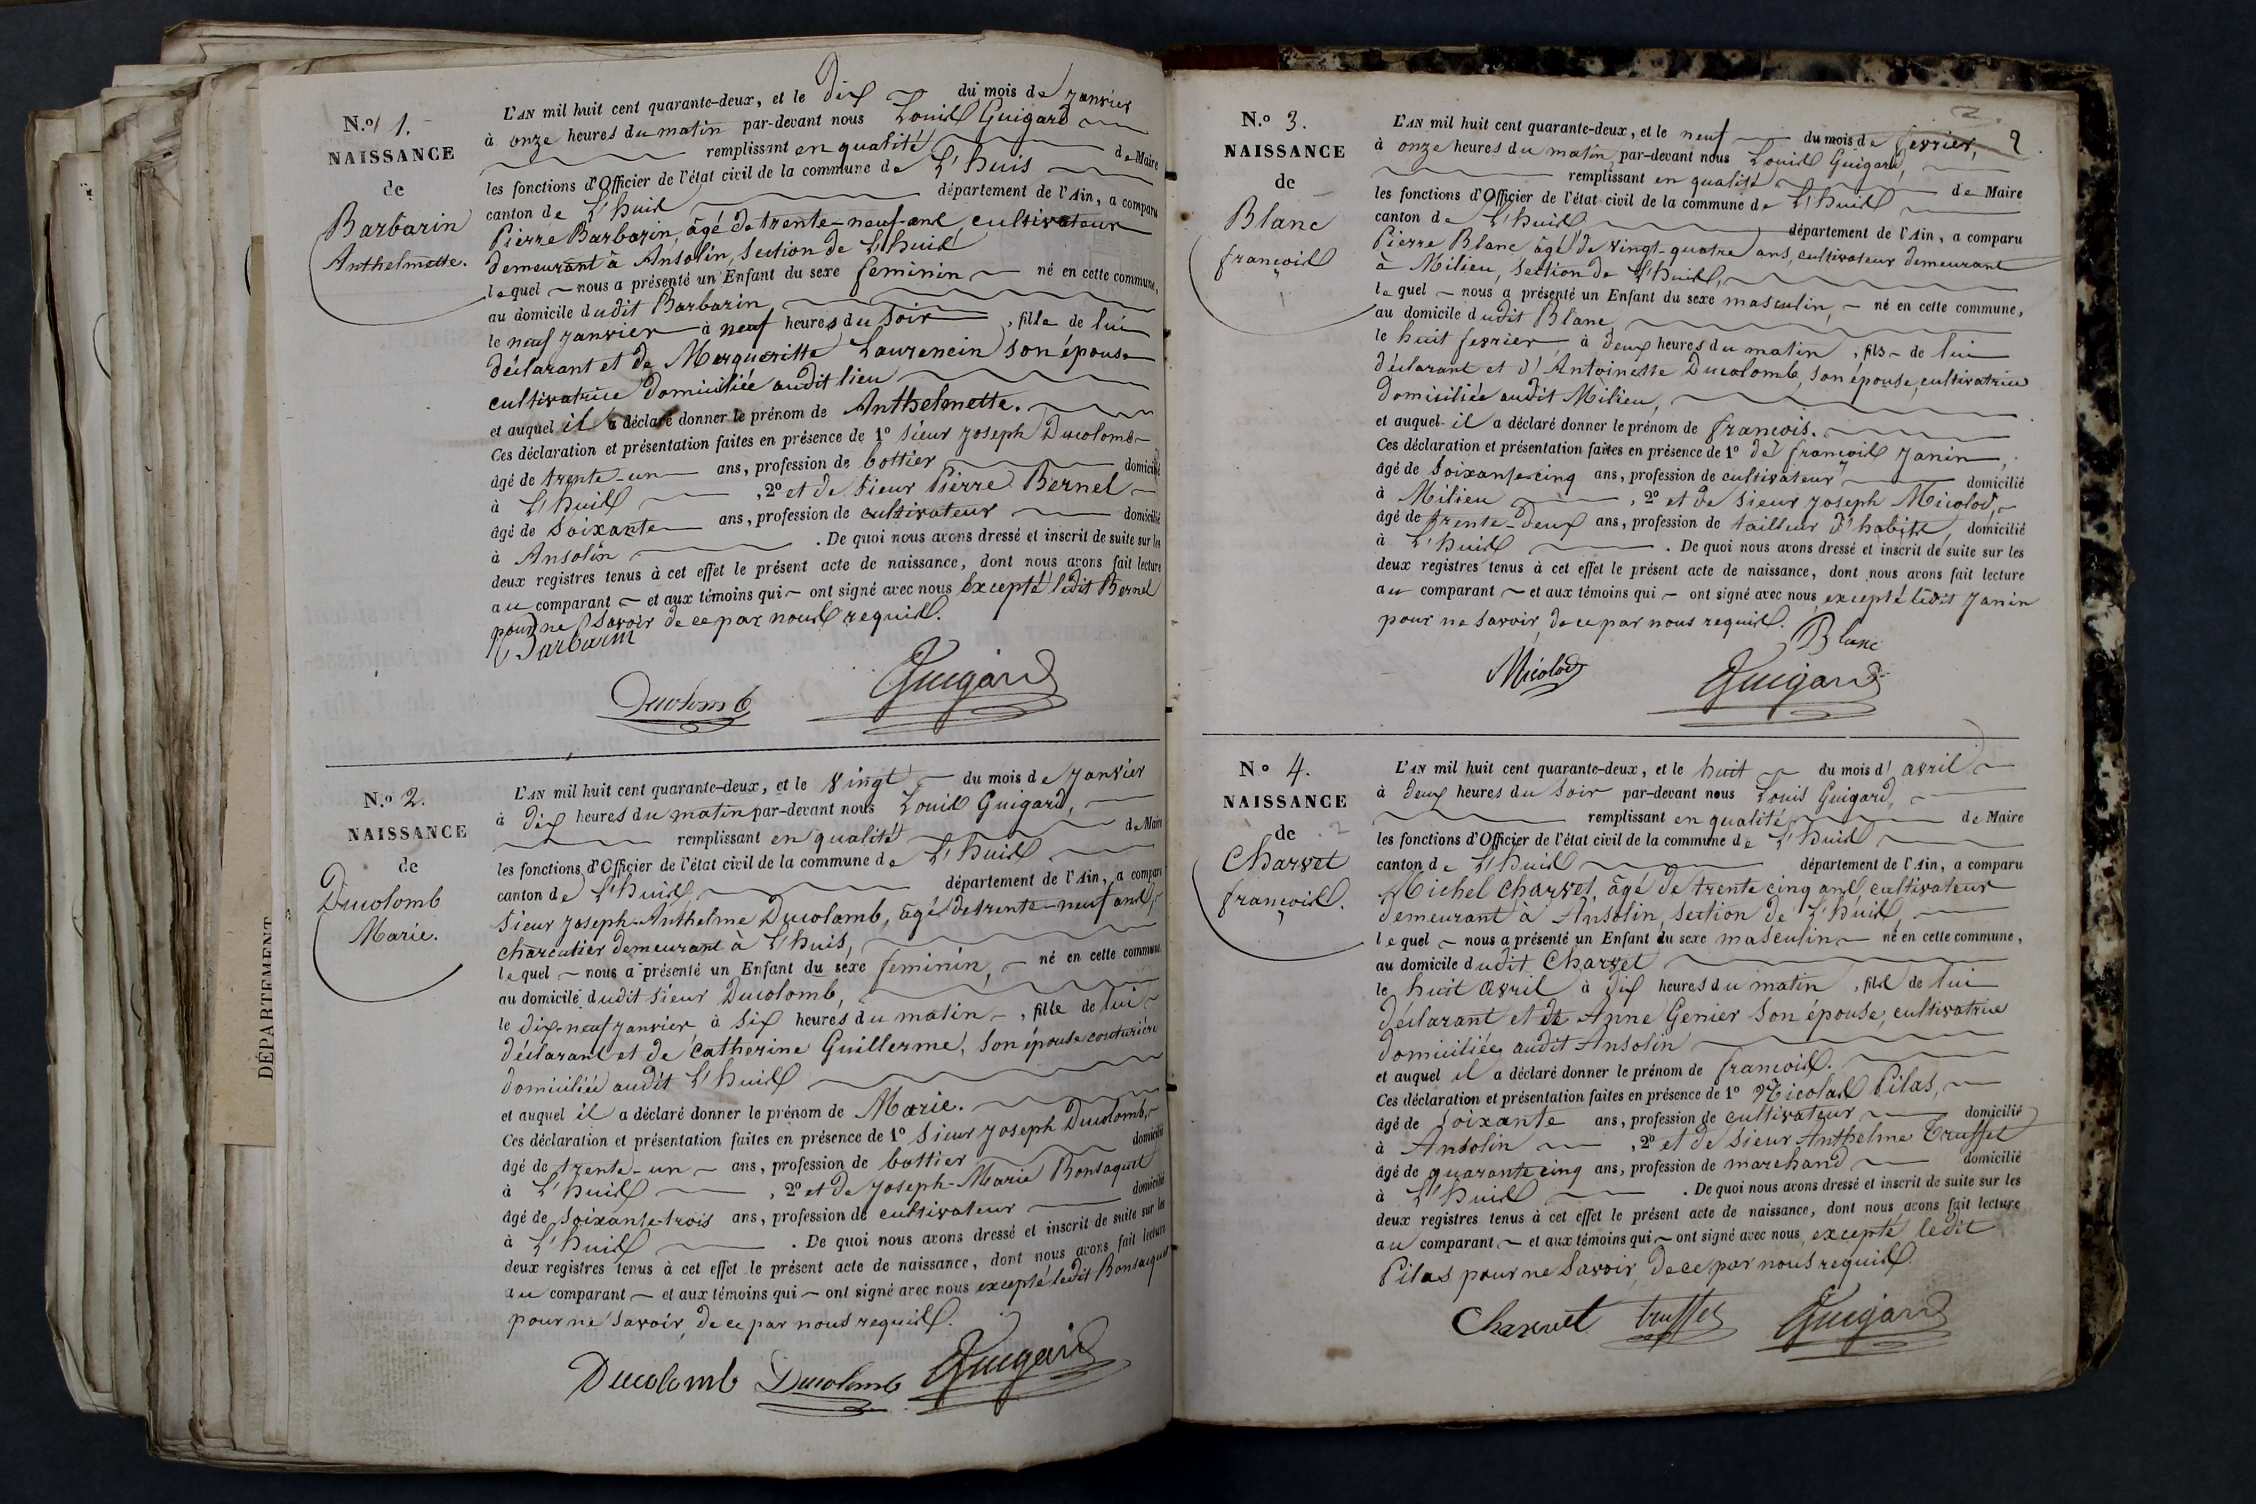 N.º 1.
NAISSANCE
de
Barbarin
Anthelmette.
L'AN mil huit cent quarante-deux, et le dix du mois de janvier
à onze heures du matin par-devant nous Louis Guigard
remplissant en qualité de Maire
les fonctions d'Officier de l'état civil de la commune de L'huis
canton de L'huis département de l'Ain, a comparu
Pierre Barbarin, âgé de trente-neuf ans, cultivateur
demeurant à Ansolin, section de L'huis
lequel nous a présenté un Enfant du sexe feminin né en cette commune,
au domicile dudit Barbarin
le neuf janvier à neuf heures du soir, fille de lui
déclarant et de Margueritte Laurencin son épouse
cultivatrice domiciliée audit lieu
et auquel il a déclaré donner le prénom de Anthelmette.
Ces déclaration et présentation faites en présence de 1º sieur joseph Ducolomb
âgé de trente-un ans, profession de bottier domicilié
à L'huis, 2º et de sieur Pierre Bernel
âgé de soixante ans, profession de cultivateur domicilié
à Ansolin. De quoi nous avons dressé et inscrit de suite sur les
deux registres tenus à cet effet le présent acte de naissance, dont nous avons fait lecture
au comparant et aux témoins qui ont signé avec nous excepté ledit Bernel
pour ne savoir de ce par nous requis.
Barbarin
Ducolomb Guigard
N.º 2.
NAISSANCE
de
Ducolomb
Marie.
L'AN mil huit cent quarante-deux, et le vingt du mois de janvier
à dix heures du matin par-devant nous Louis Guigard,
remplissant en qualité de Maire
les fonctions d'Officier de l'état civil de la commune de L'huis
canton de L'huis département de l'Ain, a comparu
sieur joseph-Anthelme Ducolomb, âgé de trente-neuf ans,
charcutier demeurant à L'huis,
lequel nous a présenté un Enfant du sexe feminin, né en cette commune
au domicile dudit sieur Ducolomb,
le dix-neuf janvier à six heures du matin, fille de lui
déclarant et de catherine Guillerme, son épouse couturière
domiciliée audit L'huis
et auquel il a déclaré donner le prénom de Marie.
Ces déclaration et présentation faites en présence de 1º sieur joseph Ducolomb,
âgé de trente-un ans, profession de bottier domicilié
à L'huis, 2º et de joseph-Marie Bonsaquet
âgé de soixante-trois ans, profession de cultivateur domicilié
à L'huis. De quoi nous avons dressé et inscrit de suite sur les
deux registres tenus à cet effet le présent acte de naissance, dont nous avons fait lecture
au comparant et aux témoins qui ont signé avec nous excepté ledit Bonsacquet
pour ne savoir, de ce par nous requis.
Ducolomb Ducolomb Guigard
DÉPARTEMENT
2
N.º 3.
NAISSANCE
de
Blanc
françois
L'AN mil huit cent quarante-deux, et le neuf du mois de fevrier,
à onze heures du matin, par-devant nous Louis Guigard,
remplissant en qualité de Maire
les fonctions d'Officier de l'état civil de la commune de L'huis
canton de L'huis département de l'Ain, a comparu
Pierre Blanc âgé de vingt-quatre ans, cultivateur demeurant
à Milieu, section de L'huis,
lequel nous a présenté un Enfant du sexe masculin, né en cette commune,
au domicile dudit Blanc,
le huit fevrier à deux heures du matin, fils de lui
déclarant et d'Antoinette Ducolomb, son épouse, cultivatrice
domiciliée audit Milieu,
et auquel il a déclaré donner le prénom de francois.
Ces déclaration et présentation faites en présence de 1º de françois janin,
âgé de soixante-cinq ans, profession de cultivateur domicilié
à Milieu, 2º et de sieur joseph Micolod,
âgé de trente-deux ans, profession de tailleur d'habits, domicilié
à L'huis. De quoi nous avons dressé et inscrit de suite sur les
deux registres tenus à cet effet le présent acte de naissance, dont nous avons fait lecture
au comparant et aux témoins qui ont signé avec nous, excepté ledit janin
pour ne savoir, de ce par nous requis.
Blanc
Micolod Guigard
Nº 4.
NAISSANCE
de
Charvet
françois.
L'AN mil huit cent quarante-deux, et le huit du mois d'avril
à deux heures du soir par-devant nous Louis Guigard,
remplissant en qualité de Maire
les fonctions d'Officier de l'état civil de la commune de L'huis
canton de L'huis département de l'Ain, a comparu
Michel Charvet, âgé de trente cinq ans cultivateur
demeurant à Ansolin, section de L'huis,
lequel nous a présenté un Enfant du sexe masculin né en cette commune,
au domicile dudit Charvet
le huit avril à dix heures du matin, fils de lui
déclarant et de Anne Genier son épouse, cultivatrice
domiciliée audit Ansolin
et auquel il a déclaré donner le prénom de françois.
Ces déclaration et présentation faites en présence de 1º Nicolas Pilas,
âgé de soixante ans, profession de cultivateur domicilié
à Ansolin, 2º et de sieur Anthelme Truffet
âgé de quarante cinq ans, profession de marchand domicilié
à L'huis. De quoi nous avons dressé et inscrit de suite sur les
deux registres tenus à cet effet le présent acte de naissance, dont nous avons fait lecture
au comparant et aux témoins qui ont signé avec nous, excepté ledit
Pilas pour ne savoir, de ce par nous requis.
Charvet truffet Guigard